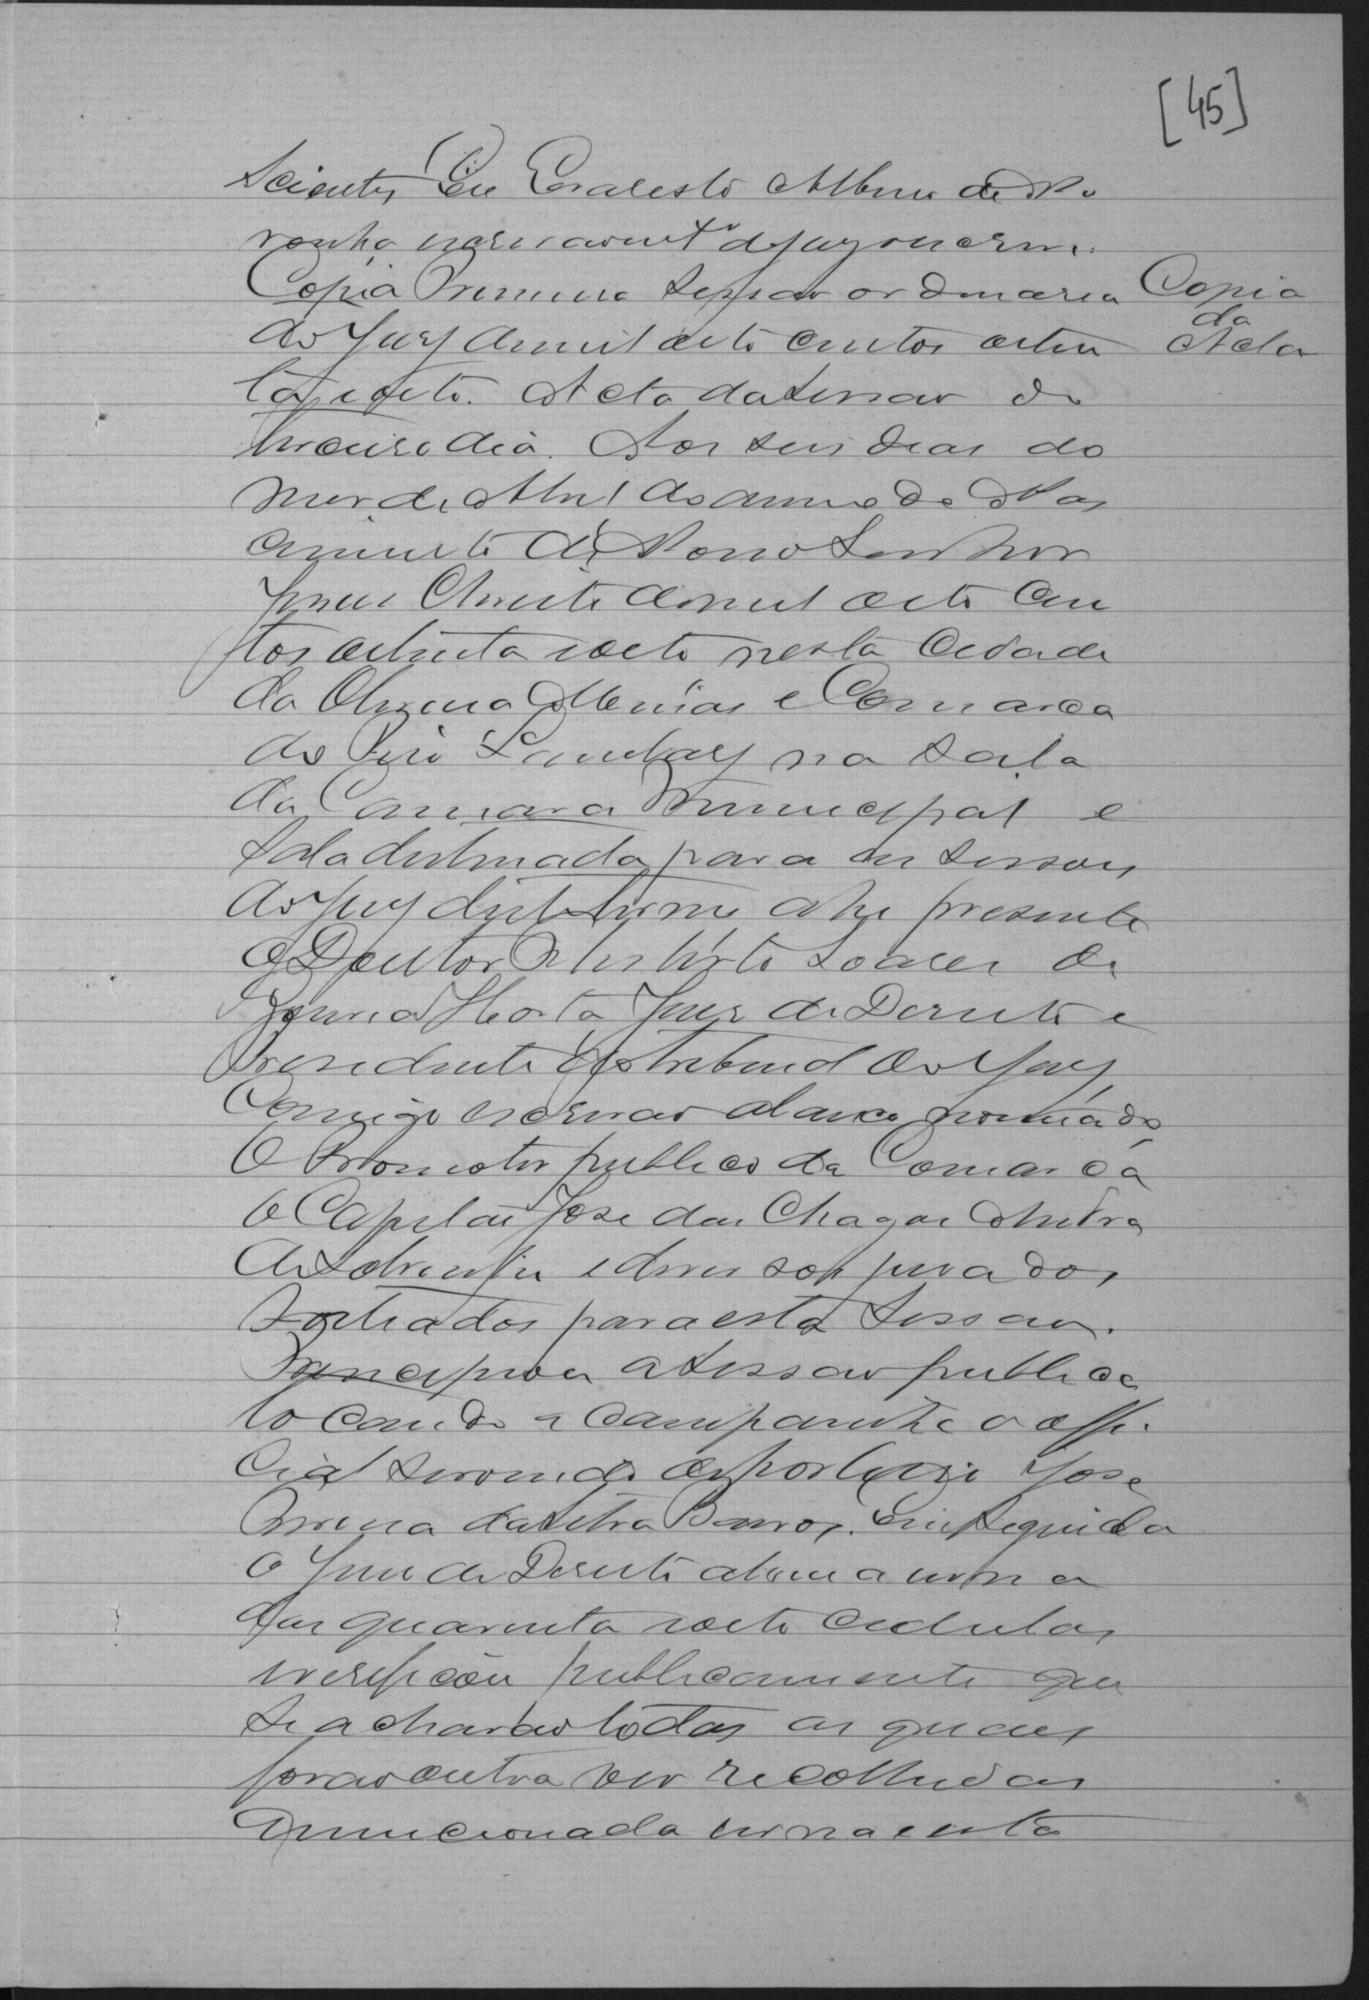 [45]
Scientes Eu Ernesto Albino de No
ronha escrivam
Copia Primeira Sessão ordinaria
do Jury de mil oito centos oiten
ta e oito. Acta da Sessão do
primeiro dia. Aos seis dias do
mez de Abril do anno do Nas
cimento de Nosso Senhor
Jesus Christo de mil oito cen
tos oitenta e oito nesta Cidade
da Oliveira Minas e Comarca
do Rio Lambary na sala
da Camara Municipal e
sala destinada para as sessoes
do Jury deste termo ahi presente
o Doutor Alberto Soares de
Souza Horta Juiz de Dereito e
Presidente do tribunal do Jury
Comigo escrivão abaixo nomiado
O Promotor publico da Comarca
O Capitão Jose das Chagas Andra
de e diversos jurados
sorteados para esta Sessão.
Principiou a sessão publica
tocando a campanhia o offi
cial servindo de porteiro Jose
da Silva Barros. Em seguida
o Juiz de Dereito abriu a urna
das quarenta e oito cedulas
e verificou publicamente que
se acharão todas as quaes
forão outra vez recolhidas
a mencionada urna e esta
Copia
da
Acta